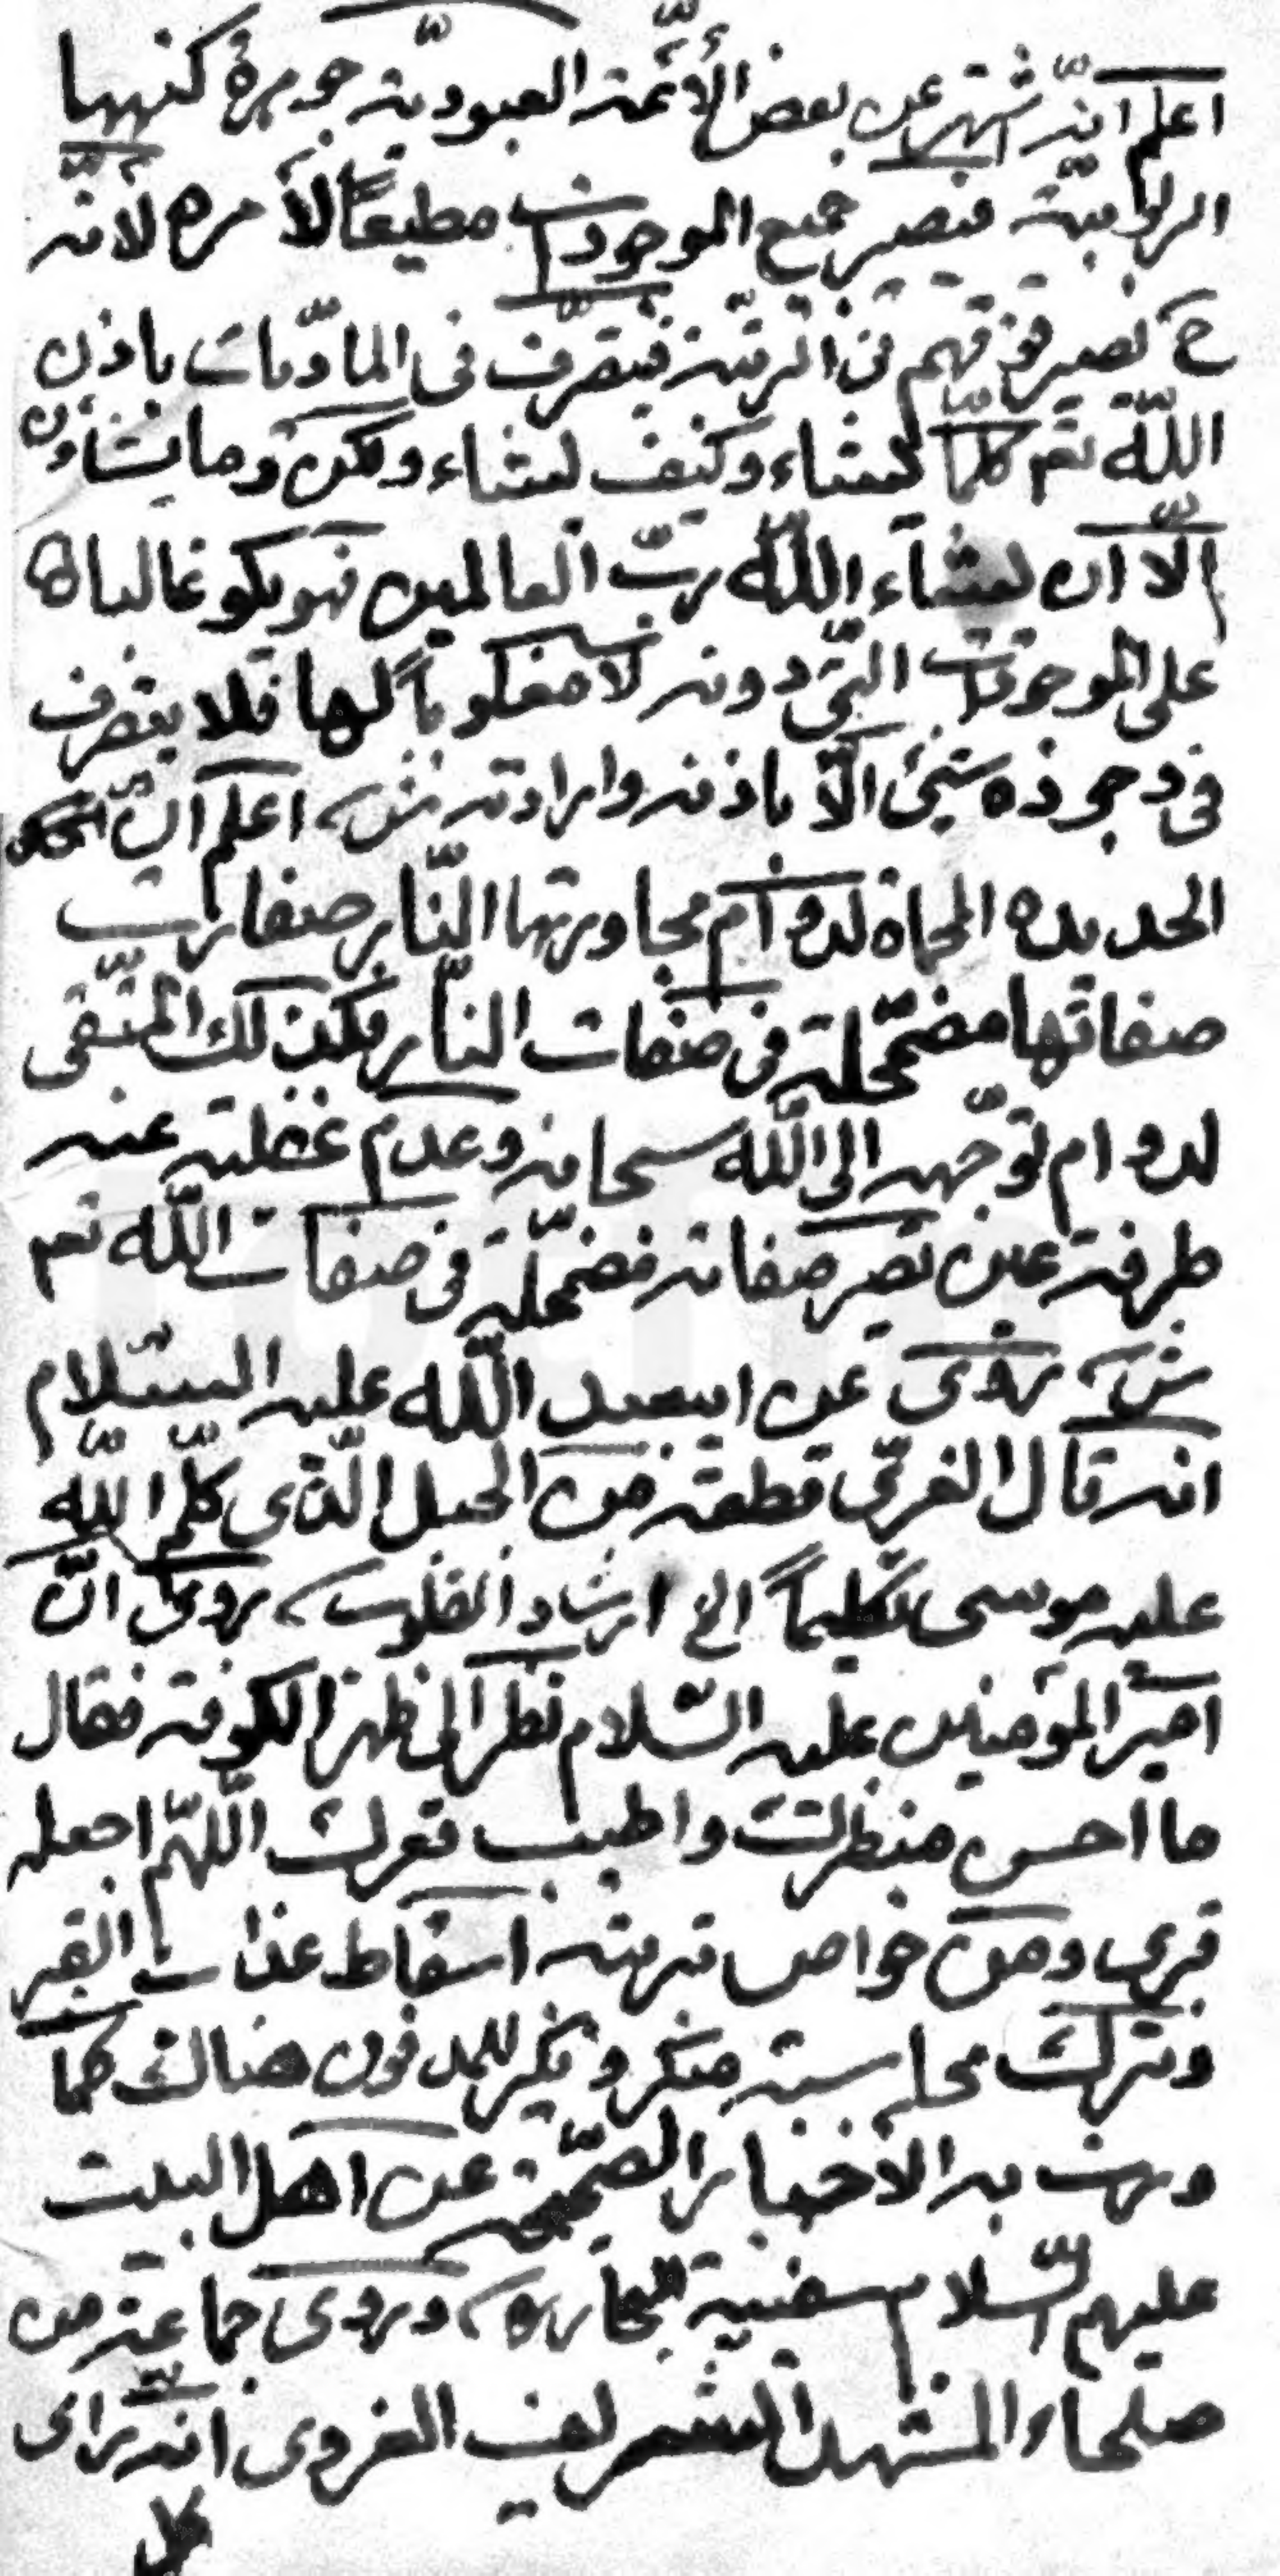 اعلم انّه اشتهر عن بعض الأئمّة العبوديّة جوهرة كنهها
الربوبيّة فيصير جميع الموجودات مطيعاً لأمره لأنّه
ح يصير فوقهم فى الرتبة فيتصرّف فى المادّيات باذن
اللّه تعم كلّما يشاء وكيف يشاء ولكن وما يشاؤن
الّا ان يشآء اللّه ربّ العالمين فهو يكو غالبا
على الموجودات الّتى دونه لا مغلوباً لها فلا يتصرف
فى وجوده شيئ الّا باذنه وارادته ش اعلم انّ
الحديده المحماة لدوام مجاورتها النّار صفارت
صفاتها مضمّحلة فى صفات النّار فكذلك المتّقى
لدوام توجّهه الى اللّه سبحانه وعدم غفلته عنه
طرفة عين تصير صفاته مضمحلّة فى صفات اللّه تعم
ش روى عن ابيعبد اللّه عليه السّلام
انه قال الغرىّ قطعة من الجبل الّذى كلّم اللّه
عليه موسى تكليماً الخ ارشاد القلوب، روى انّ
امير المؤمنين عليه السّلام نظر الى ظهر الكوفة فقال
ما احسن منظرك واطيب قعرك اللّهمّ اجعله
قبرى ومن خواص تربته اسقاط عذاب القبر
وترك محاسبة منكر ونكير للمدفون هناك كما
وردت به الاخبار الصّحيحة عن اهل البيت
عليهم السّلام سفينة البحار، وروى جماعة من
صلحاء المشهد الشريف الغروى انّه راى
كل